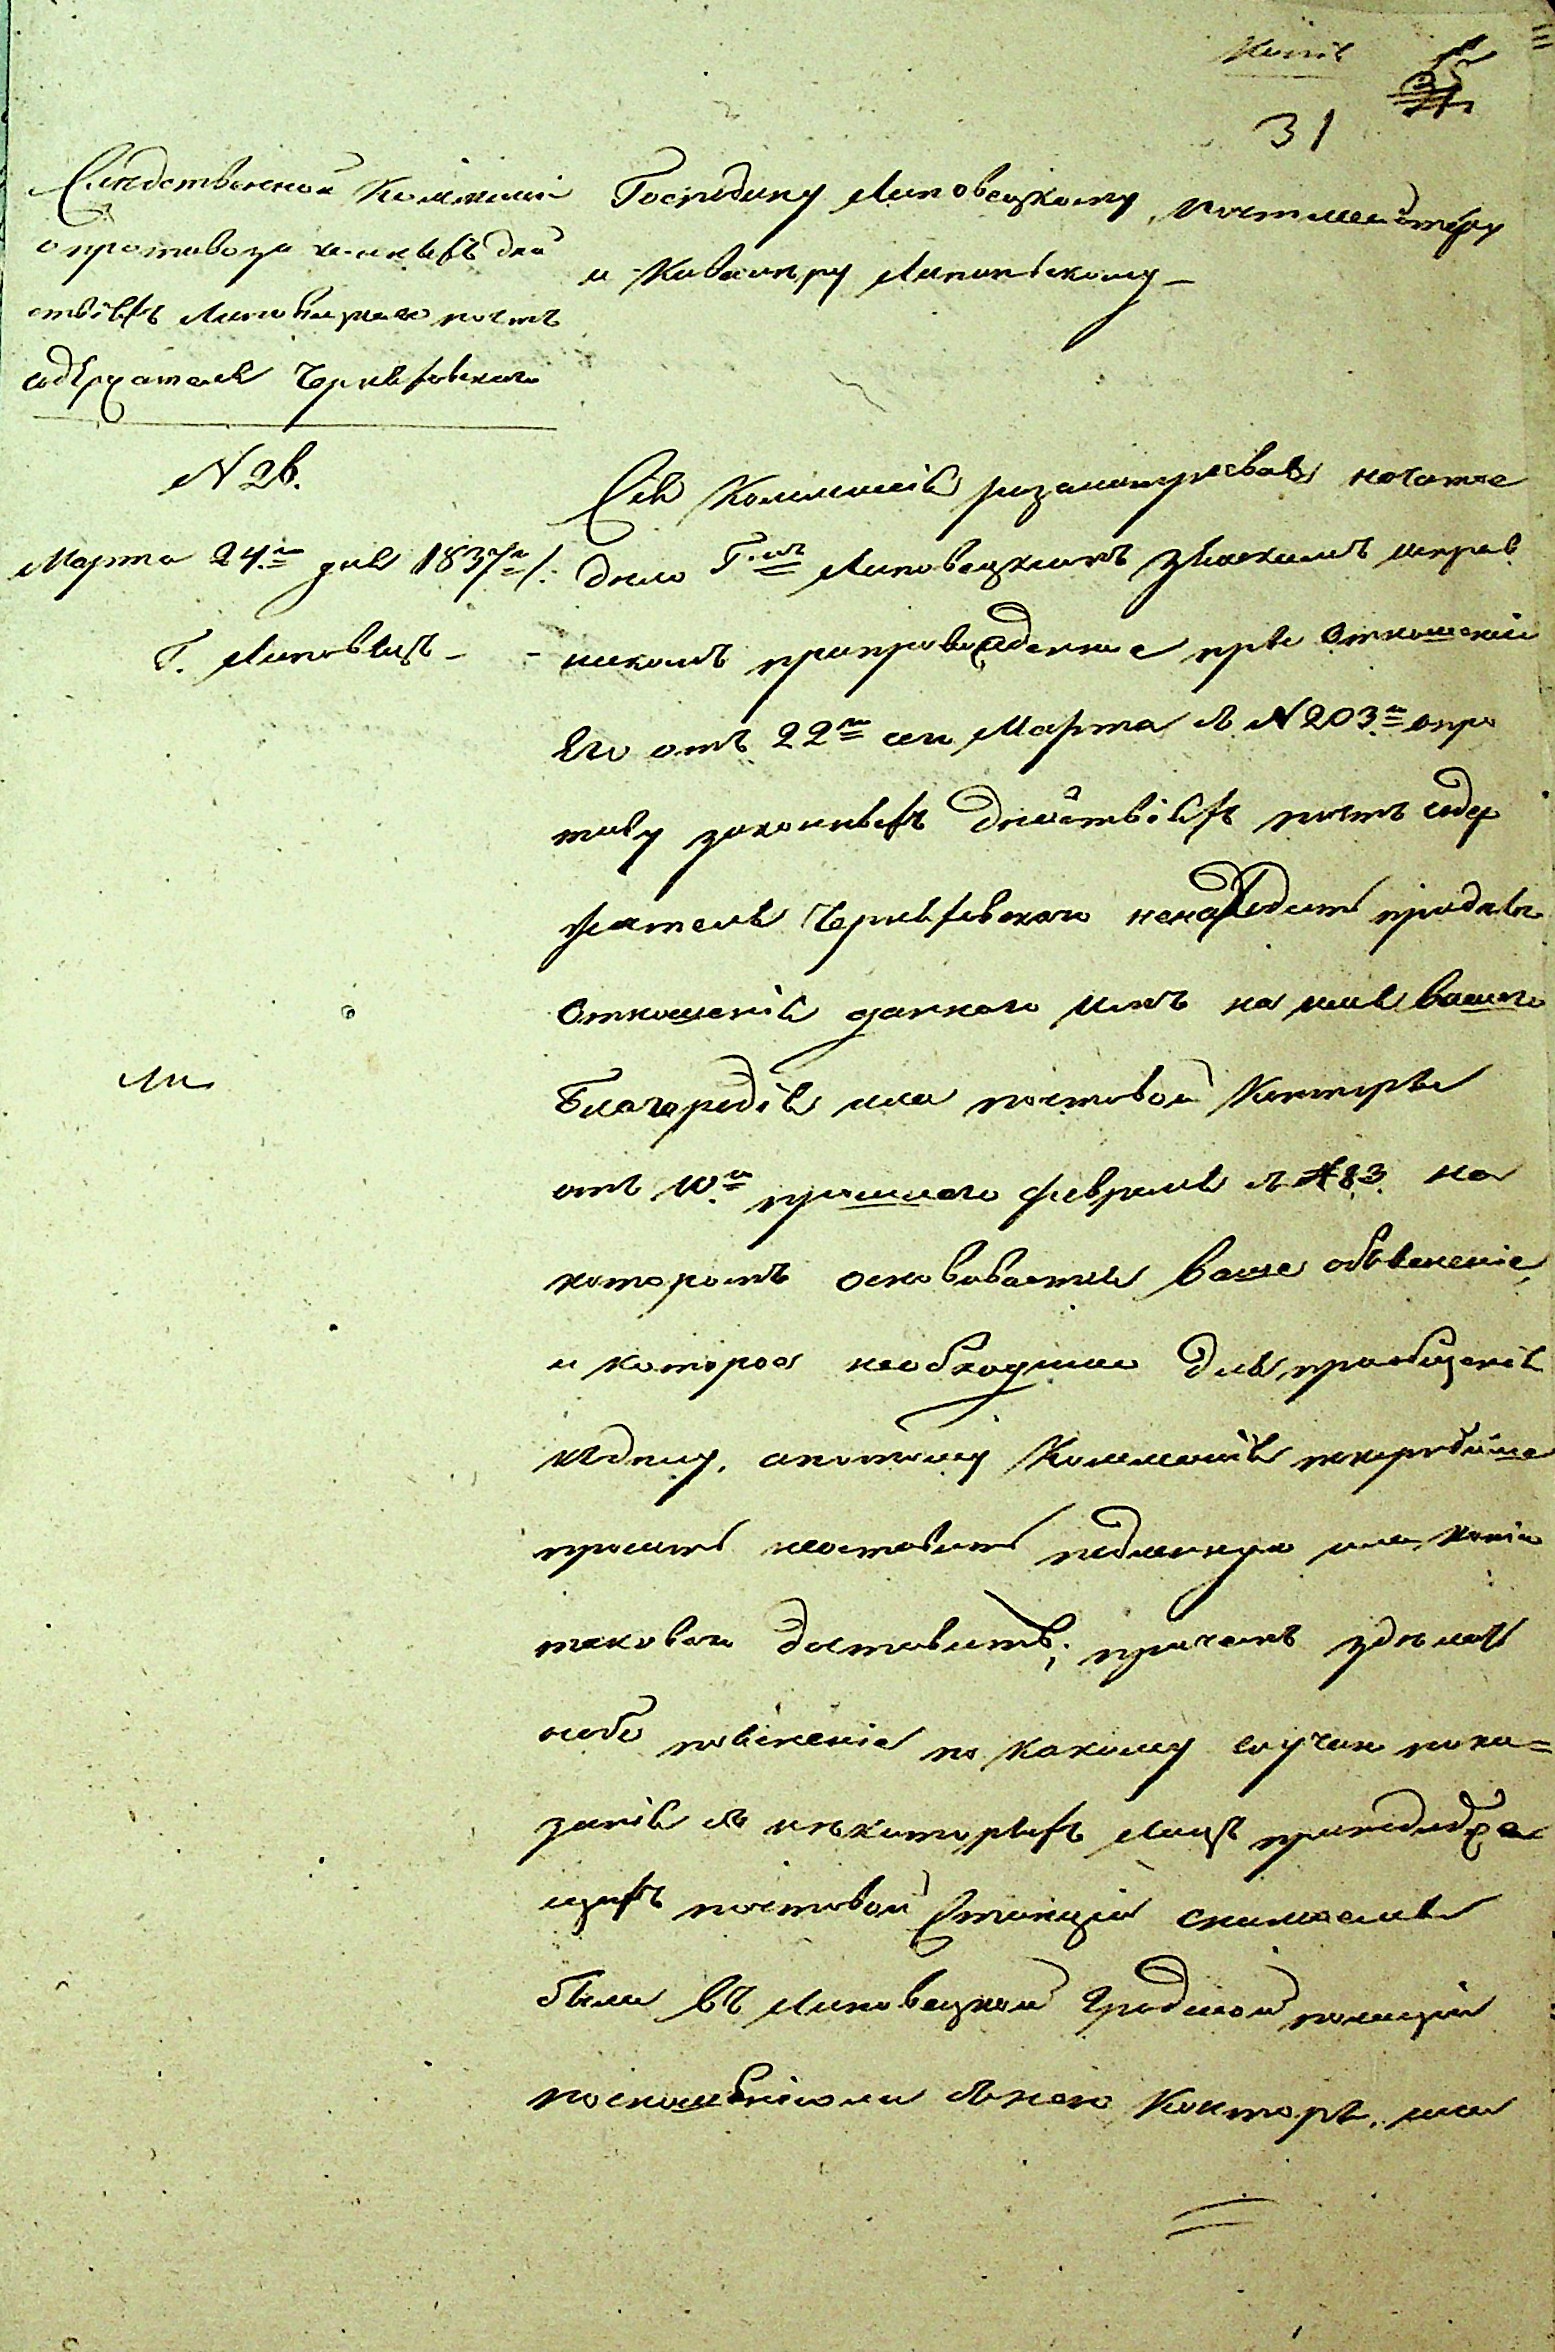 Копія
31
Следственной Коммисіи
опротивоза конныхъ дей
ствіяхъ Липовецкаго почтъ
содержателя Чернѣховскаго
N 26.
Марта 24.го дня 1837го/:
Г. Липовецъ
Господину Липовецкому Почтмейстеру
и Кавалеру Липинскому
Сія Коммисія разсмотревая начатое
дело Г.мъ Липовецкимъ Земскимъ исправ
никомъ препровожденное при Отношеніи
Его отъ 22го сего Марта за N 203.м опро
тиву законныхъ действіяхъ почтъ содер
жателя Черныховскаго ненаходитъ придель
Отношенія даннаго имъ на имя вашего
Благородія или почтовой Конторы
отъ 10.го прошлаго февраля за N 83. на
которомъ основывается ваше объвененіе,
и которое необходимо для пріобщенія
кделу, апотому Коммисія покорнейше
проситъ неоставить подленную или Копію
таковаго доставить, причемъ зделать
особо поясненіе по какому случаю пока=
занія съ некоторыхъ лицъ принадлежа
щихъ почтовой Станціи снимаемы
были въ Липовецкой Градской полиціи
посношеніюли сънею Конторы, или